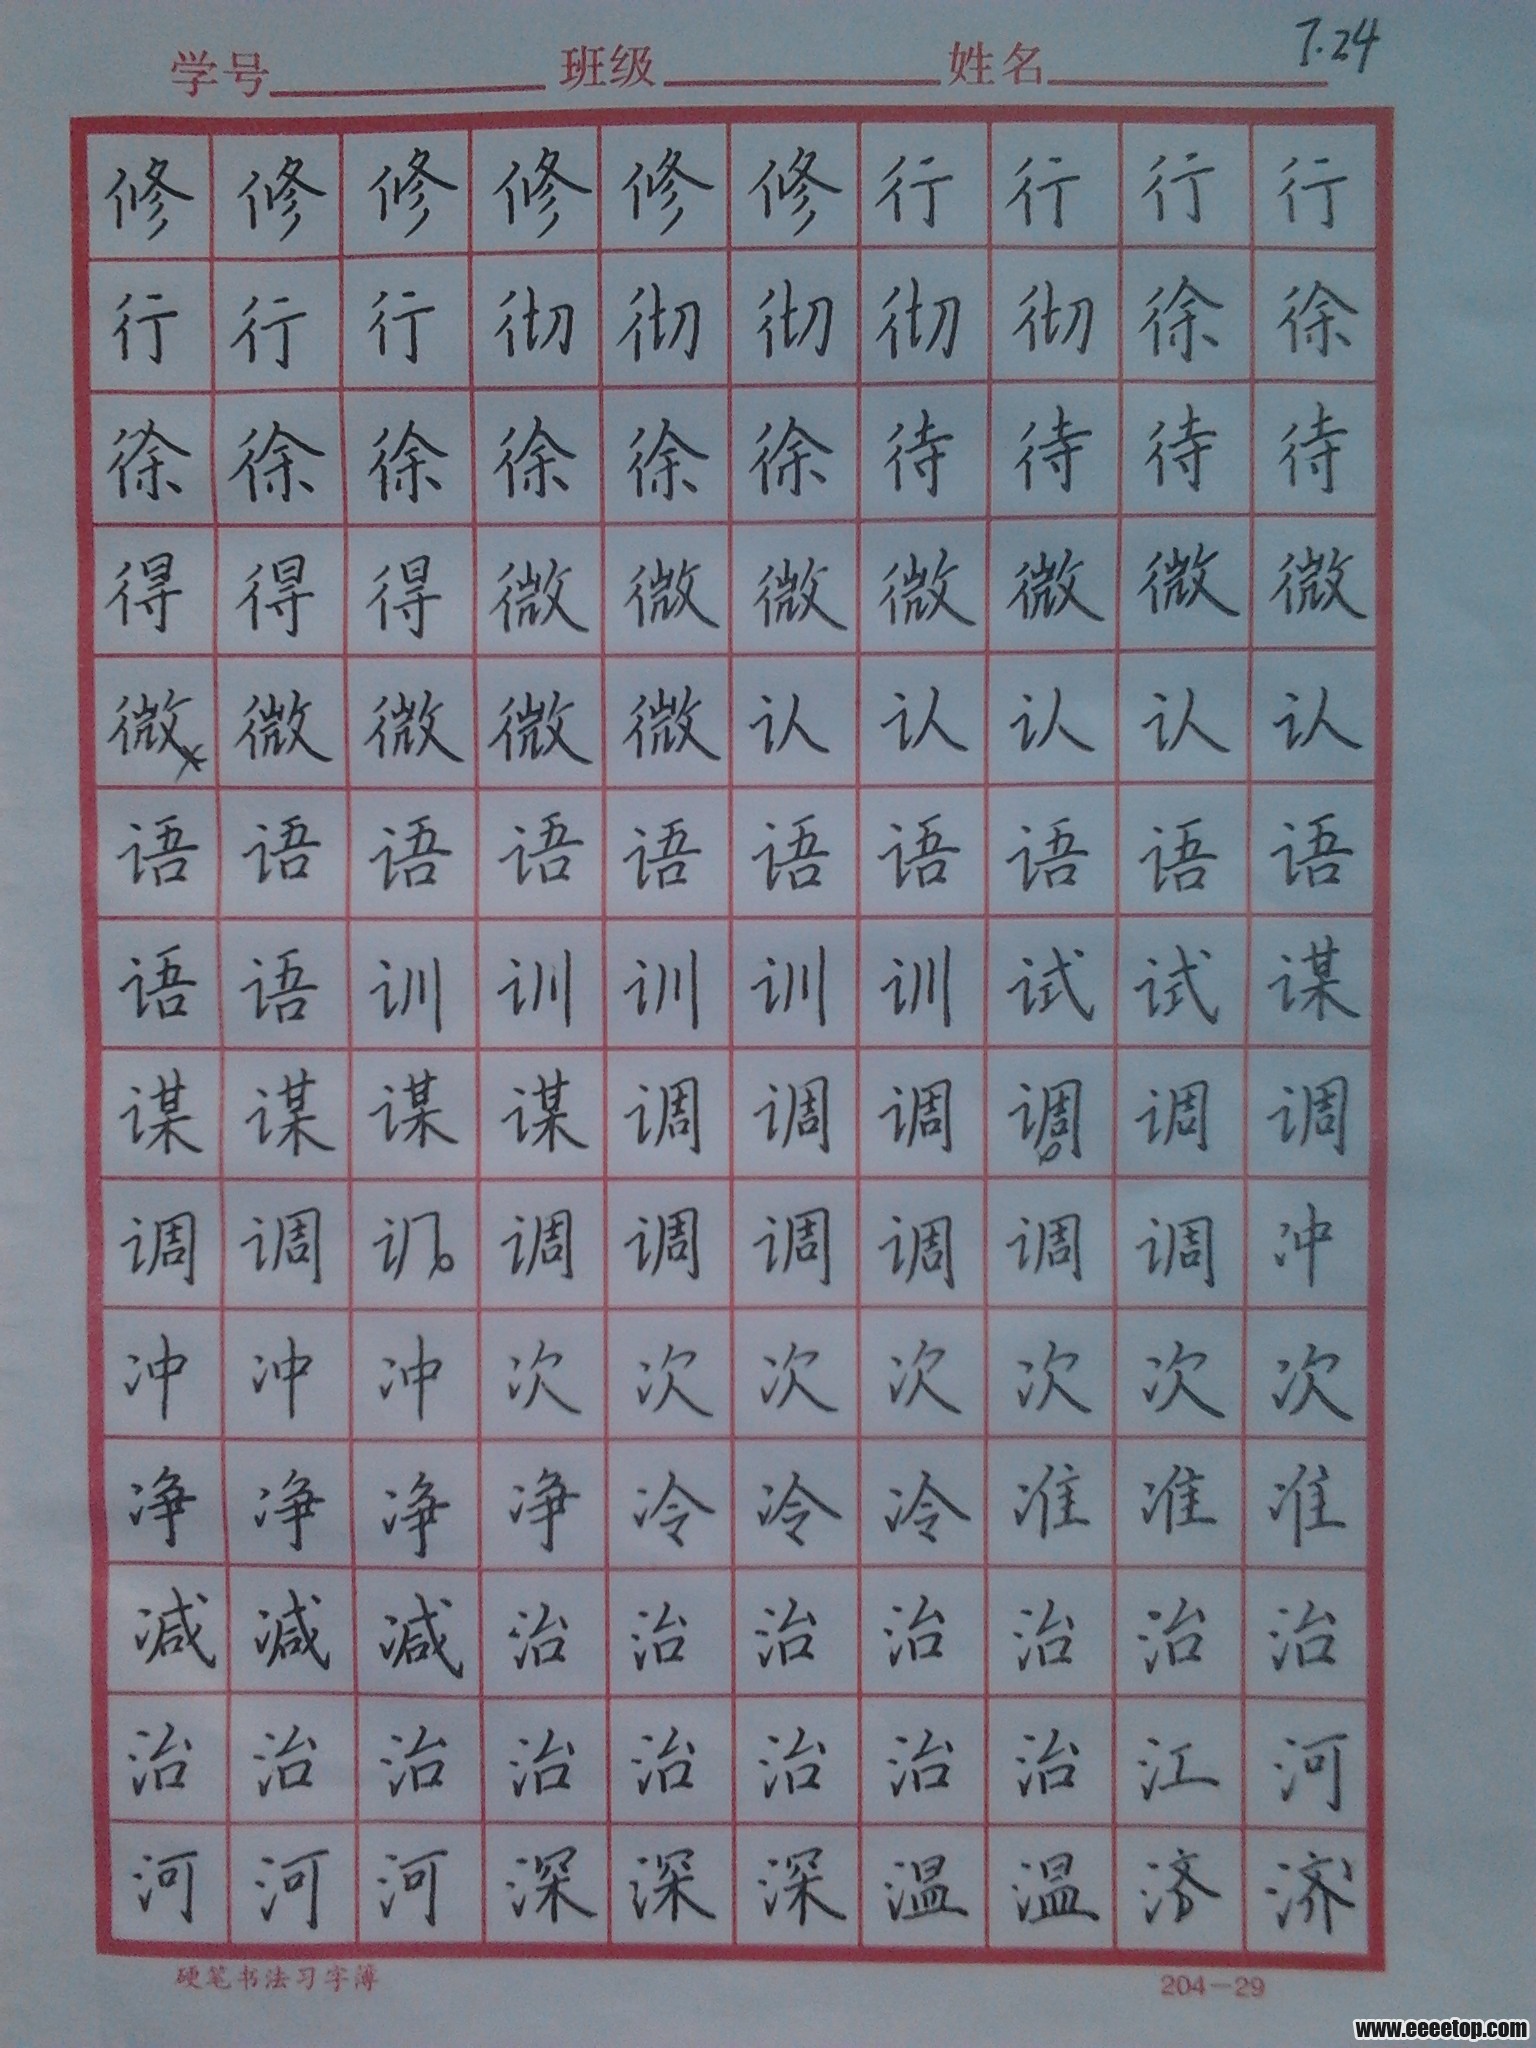 7.24
学号 班级 姓名
修修修修修修行行行行
行行行彻彻彻彻彻徐徐
徐徐徐徐徐徐待待待待
得得得微微微微微微微
微微微微微认认认认认
语语语语语语语语语语
语语训训训训训试试谋
谋谋谋谋调调调调调调
调调调调调调调调冲
冲冲冲次次次次次次次
净净净净冷冷冷准准准
减减减治治治治治治治
治治治治治治治治江河
河河河深深深温温济济
硬笔书法习字簿 204-29
www.eeeetop.com